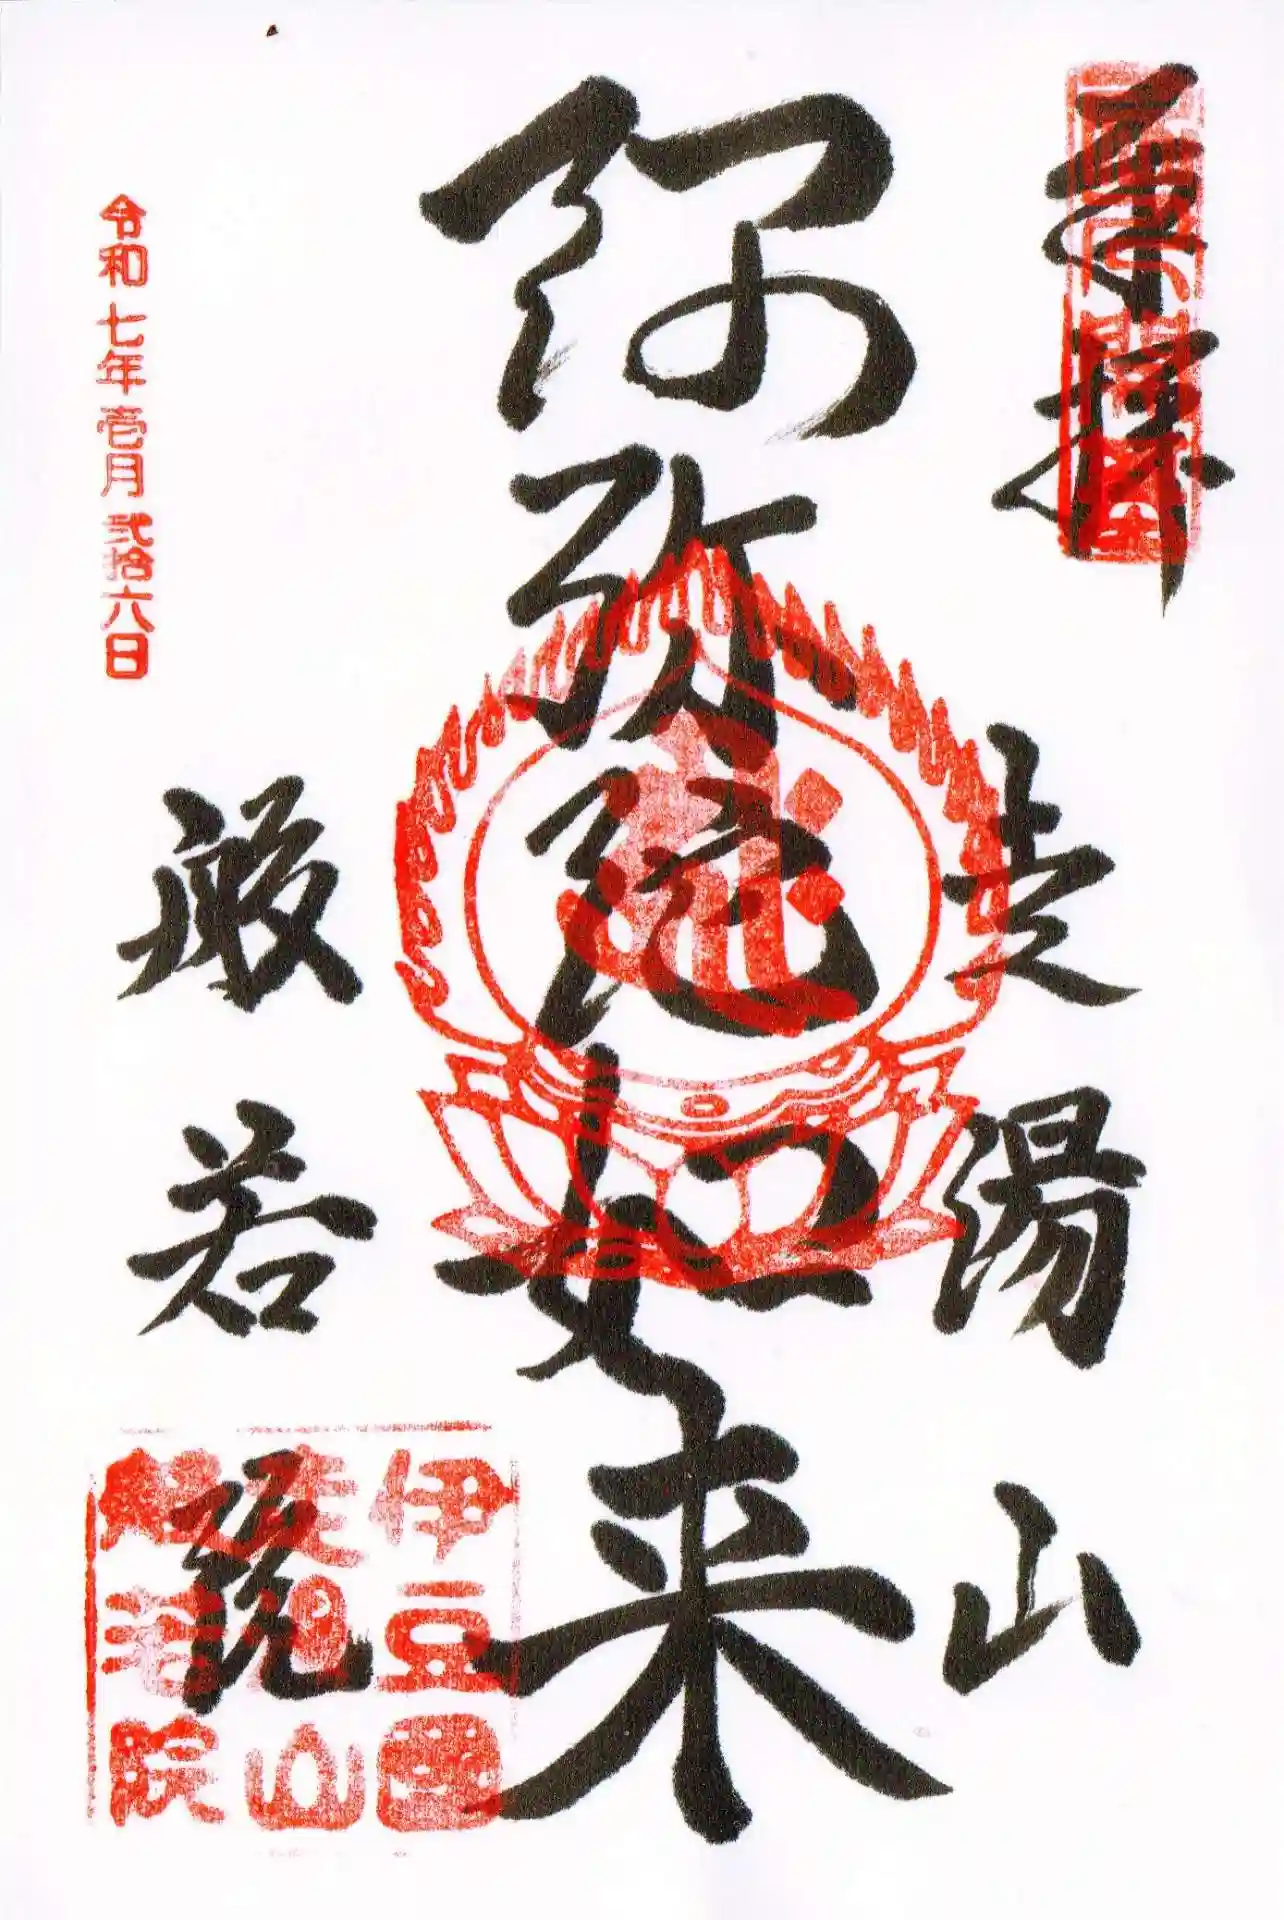 奉拝
走湯山
阿弥陀如来
般若院
令和七年壱月弐拾六日
伊豆國
走湯山
般若院